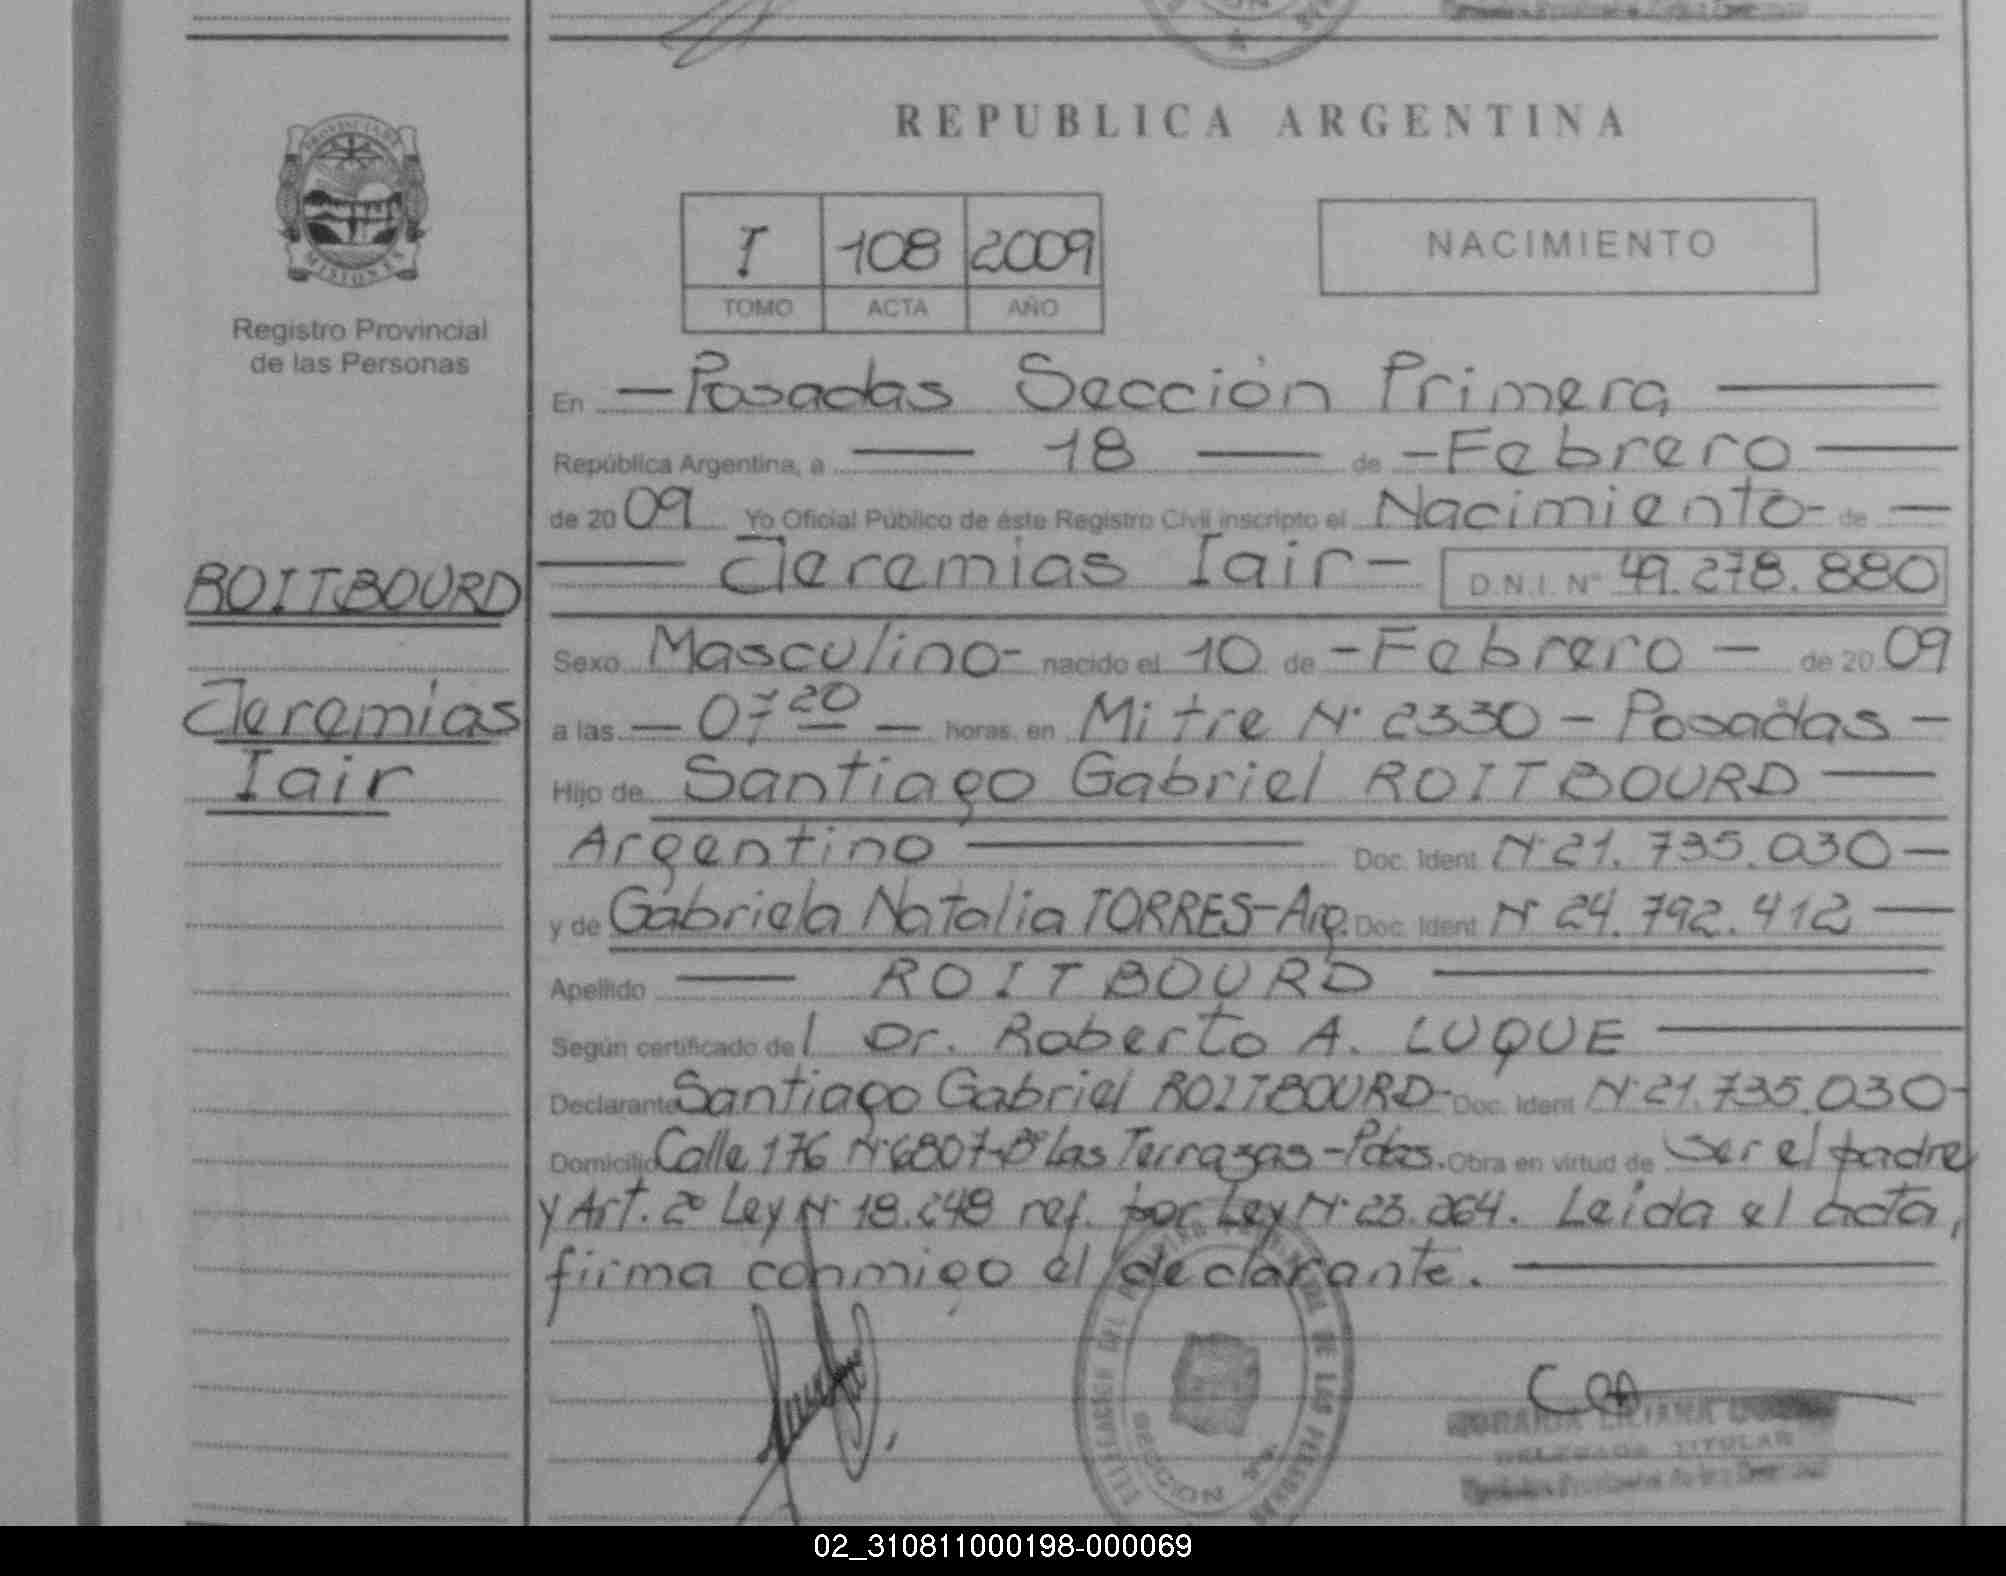 REPUBLICA ARGENTINA
PROVINCIA DE
MISIONES
Registro Provincial
de las Personas
I 108 2009
TOMO ACTA AÑO
NACIMIENTO
En - Posadas Sección Primera
República Argentina, a 18 de - Febrero
de 2009 Yo Oficial Público de éste Registro Civil inscripto el Nacimiento - de
Jeremias Iair - D.N.I. Nº 49.278.880
ROITBOURD
Jeremias
Iair
Sexo Masculino - nacido el 10 de - Febrero - de 2009
a las - 07 20 - horas. en Mitre Nº 2330 - Posadas -
Hijo de Santiago Gabriel ROITBOURD
Argentino Doc. Ident Nº 21.735.030 -
y de Gabriela Natalia TORRES - Arg. Doc. Ident Nº 24.792.412
Apellido ROITBOURD
Según certificado del Dr. Roberto A. LUQUE
Declarante Santiago Gabriel ROITBOURD - Doc. Ident Nº 21.735.030 -
Domicilio Calle 176 Nº 6807 - Bº Las Terrazas - Pdas. Obra en virtud de ser el padre
y Art. 2º Ley Nº 18.248 ref. por Ley Nº 23.264. Leida el acta,
firma conmigo el declarante.
DELEGADA TITULAR
02_310811000198-000069